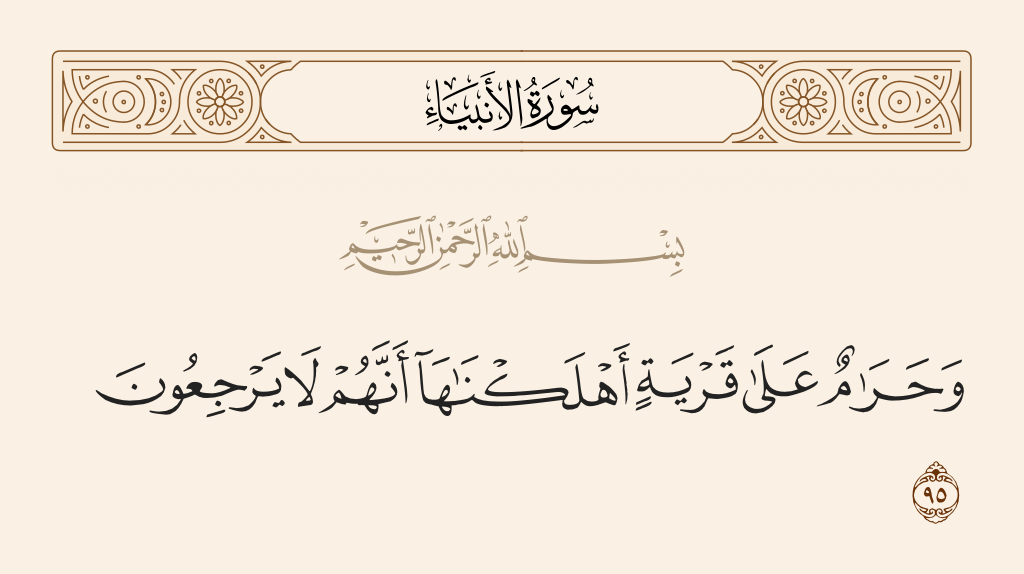 سُورَةُ الأَنبِيَاءِ
بِسْمِ ٱللَّهِ ٱلرَّحْمَٰنِ ٱلرَّحِيمِ
وَحَرَٰمٌ عَلَىٰ قَرْيَةٍ أَهْلَكْنَٰهَآ أَنَّهُمْ لَا يَرْجِعُونَ
٩٥